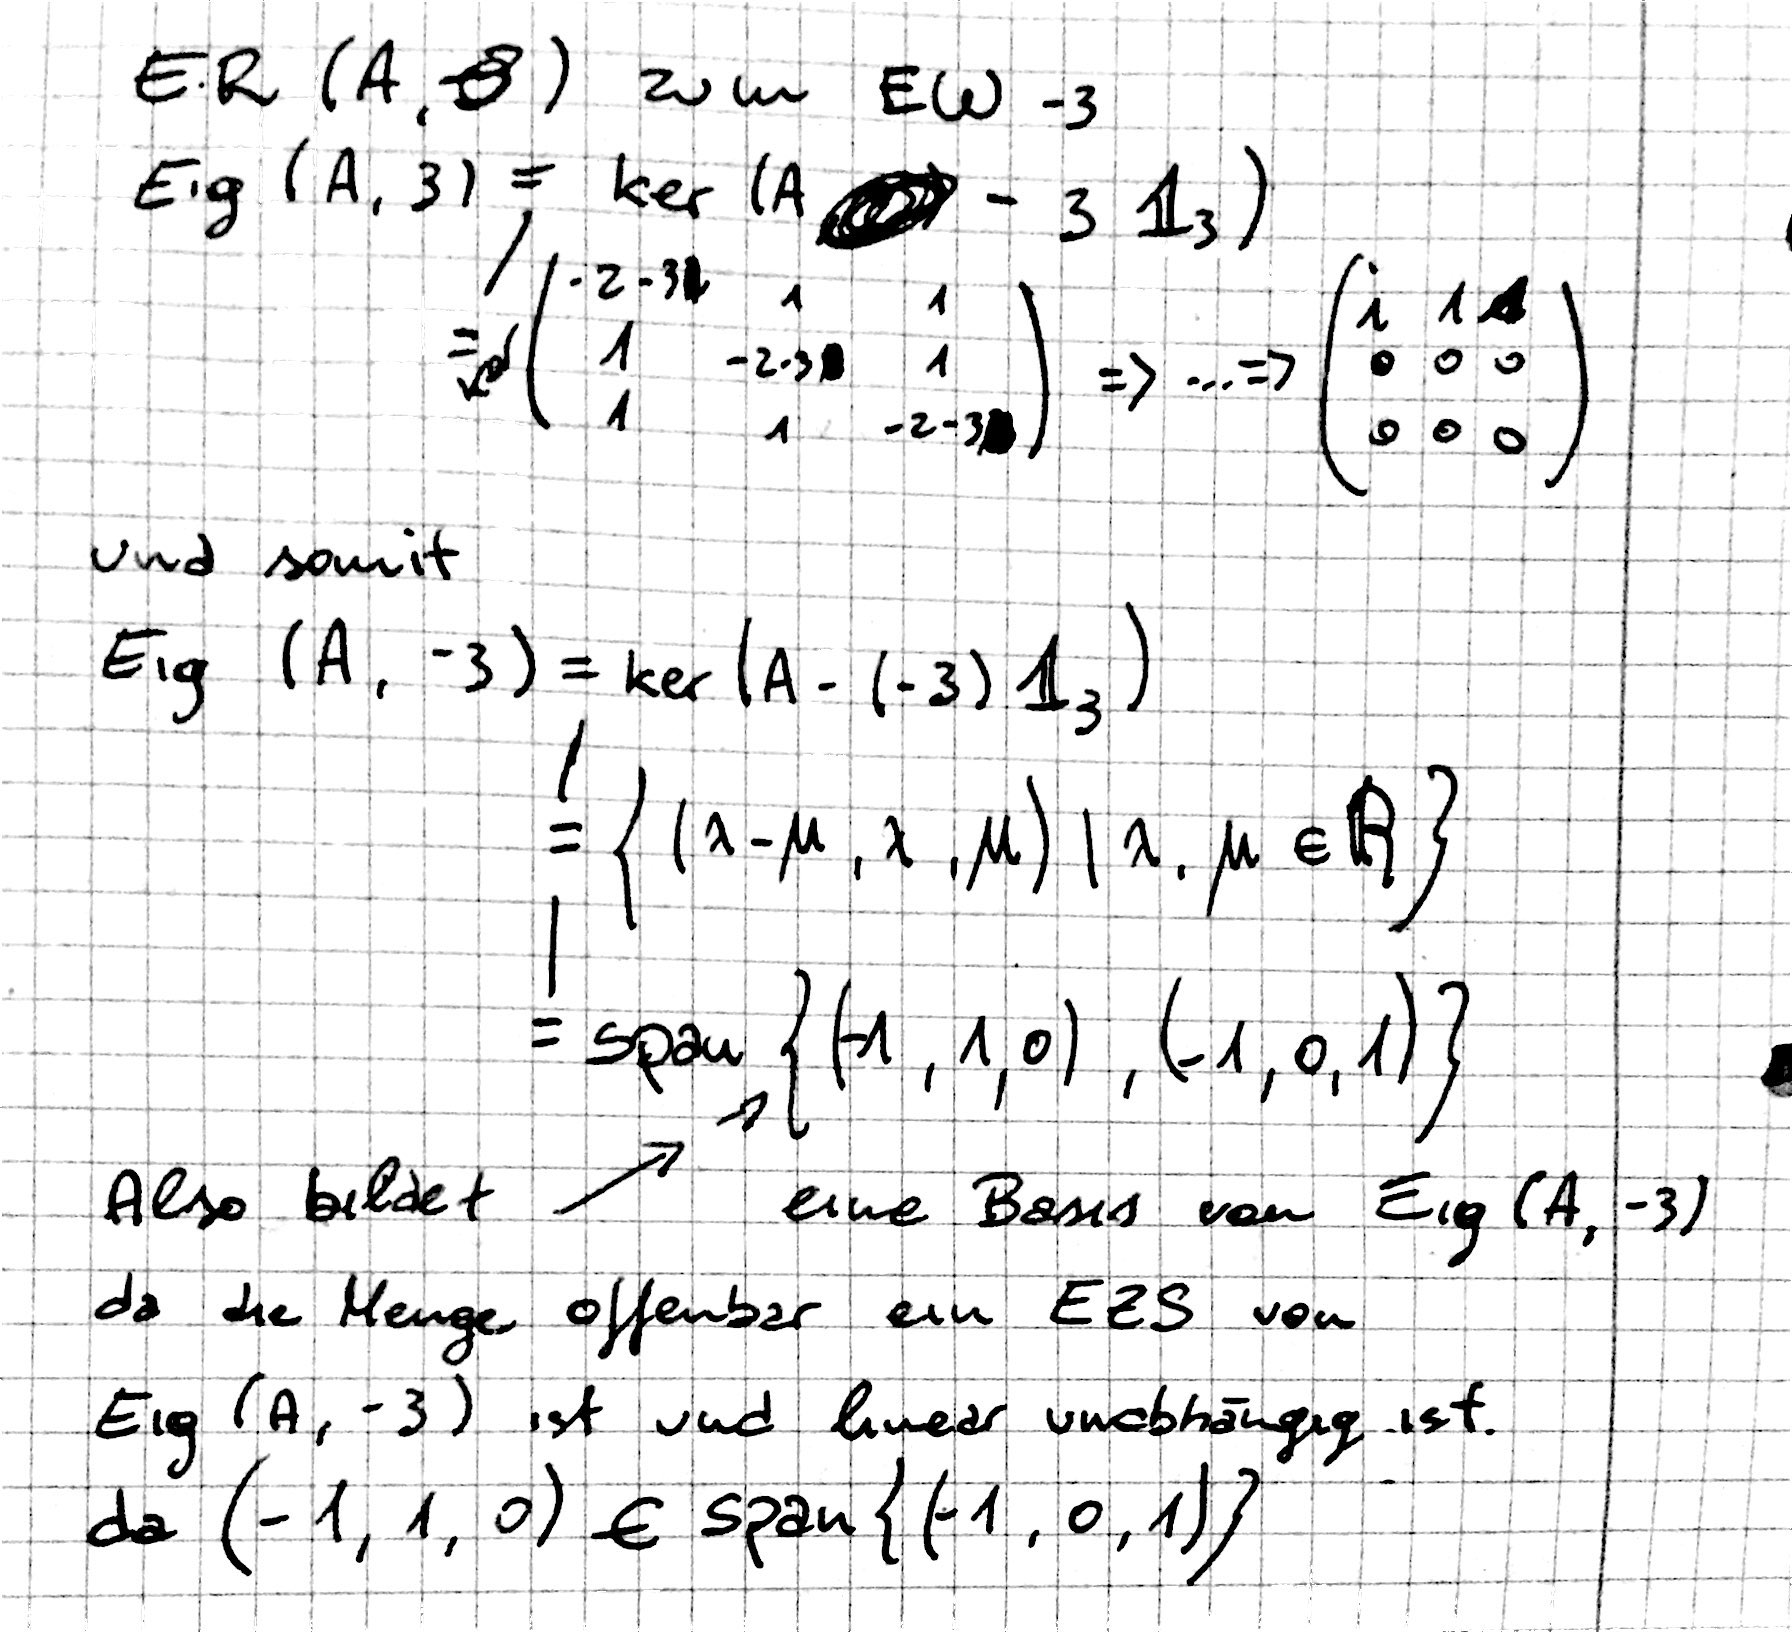 E.R (A, -3) zum EW -3
Eig (A, 3) = ker (A - 3 𝟙₃)
= ( -2-3 1 1 ) => ... => ( 1 1 1 )
( 1 -2-3 1 ) ( 0 0 0 )
( 1 1 -2-3 ) ( 0 0 0 )
und somit
Eig (A, -3) = ker (A - (-3) 𝟙₃)
= { (λ-μ, λ, μ) | λ, μ ∈ ℝ }
= span {(-1, 1, 0), (-1, 0, 1)}
Also bildet ↗ ↗ eine Basis von Eig (A, -3)
da die Menge offenbar ein EZS von
Eig (A, -3) ist und linear unabhängig ist.
da (-1, 1, 0) ∈ span {(-1, 0, 1)}